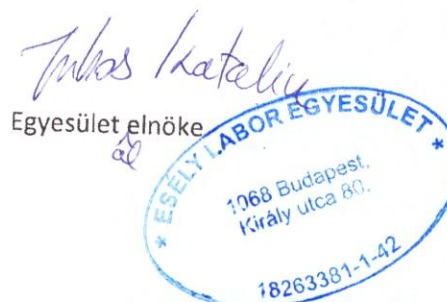 Juhos Katalin
Egyesület elnöke
* ESÉLY LABOR EGYESÜLET *
1068 Budapest,
Király utca 80.
18263381-1-42